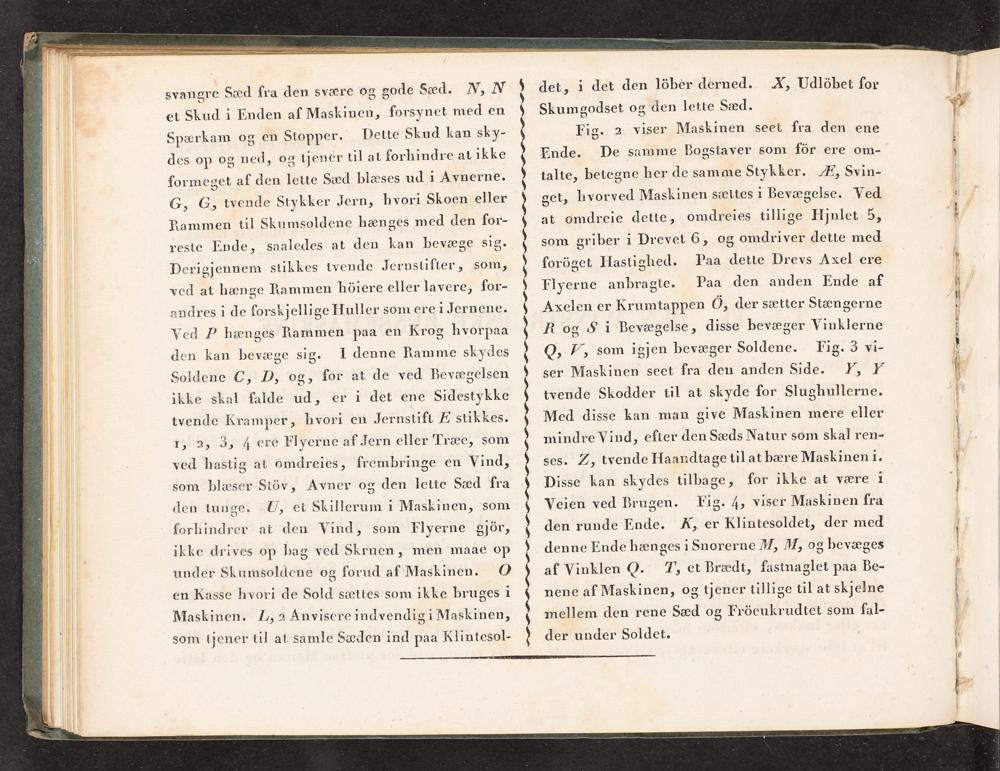 svangre Sæd fra den svære og gode Sæd. N, N
et Skud i Enden af Maskinen, forsynet med en
Spærkam og en Stopper. Dette Skud kan sky-
des op og ned, og tjener til at forhindre at ikke
formeget af den lette Sæd blæses ud i Avnerne.
G, G, tvende Stykker Jern, hvori Skoen eller
Rammen til Skumsoldene hænges med den for-
reste Ende, saaledes at den kan bevæge sig.
Derigjennem stikkes tvende Jernstifter, som,
ved at hænge Rammen höiere eller lavere, for-
andres i de forskjellige Huller som ere i Jernene.
Ved P hænges Rammen paa en Krog hvorpaa
den kan bevæge sig. I denne Ramme skydes
Soldene C, D, og, for at de ved Bevægelsen
ikke skal falde ud, er i det ene Sidestykke
tvende Kramper, hvori en Jernstift E stikkes.
1, 2, 3, 4 ere Flyerne af Jern eller Træe, som
ved hastig at omdreies, frembringe en Vind,
som blæser Stöv, Avner og den lette Sæd fra
den tunge. U, et Skillerum i Maskinen, som
forhindrer at den Vind, som Flyerne gjör,
ikke drives op bag ved Skruen, men maae op
under Skumsoldene og forud af Maskinen. O
en Kasse hvori de Sold sættes som ikke bruges i
Maskinen. L, 2 Anvisere indvendig i Maskinen,
som tjener til at samle Sæden ind paa Klintesol-
det, i det den löber derned. X, Udlöbet for
Skumgodset og den lette Sæd.
Fig. 2 viser Maskinen seet fra den ene
Ende. De samme Bogstaver som för ere om-
talte, betegne her de samme Stykker. Æ, Svin-
get, hvorved Maskinen sættes i Bevægelse. Ved
at omdreie dette, omdreies tillige Hjulet 5,
som griber i Drevet 6, og omdriver dette med
foröget Hastighed. Paa dette Drevs Axel ere
Flyerne anbragte. Paa den anden Ende af
Axelen er Krumtappen Ö, der sætter Stængerne
R og S i Bevægelse, disse bevæger Vinklerne
Q, V, som igjen bevæger Soldene. Fig. 3 vi-
ser Maskinen seet fra den anden Side. Y, Y
tvende Skodder til at skyde for Slughullerne.
Med disse kan man give Maskinen mere eller
mindre Vind, efter den Sæds Natur som skal ren-
ses. Z, tvende Haandtage til at bære Maskinen i.
Disse kan skydes tilbage, for ikke at være i
Veien ved Brugen. Fig. 4, viser Maskinen fra
den runde Ende. K, er Klintesoldet, der med
denne Ende hænges i Snorerne M, M, og bevæges
af Vinklen Q. T, et Brædt, fastnaglet paa Be-
nene af Maskinen, og tjener tillige til at skjelne
mellem den rene Sæd og Fröeukrudtet som fal-
der under Soldet.